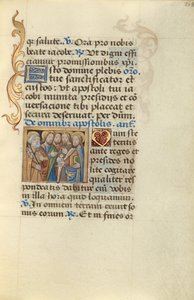 que salute. V. Ora pro nobis
beate iacobe. R. Ut digni effi
ciamur promissionibus xpi.
Esto domine plebis oro.
tue sanctificator et
custos: ut apostoli tui
munita presidiis et co
versatione tibi placeat et
secura deserviat. Per dnm.
de omnibus apostolis. ant.
Dum steteritis
ante reges et
presides no
lite cogitare
qualiter res
pondeatis dabitur enim vobis
in illa hora quid loquamini.
V. In omnem terram exivit
sonus eorum R. Et in fines or